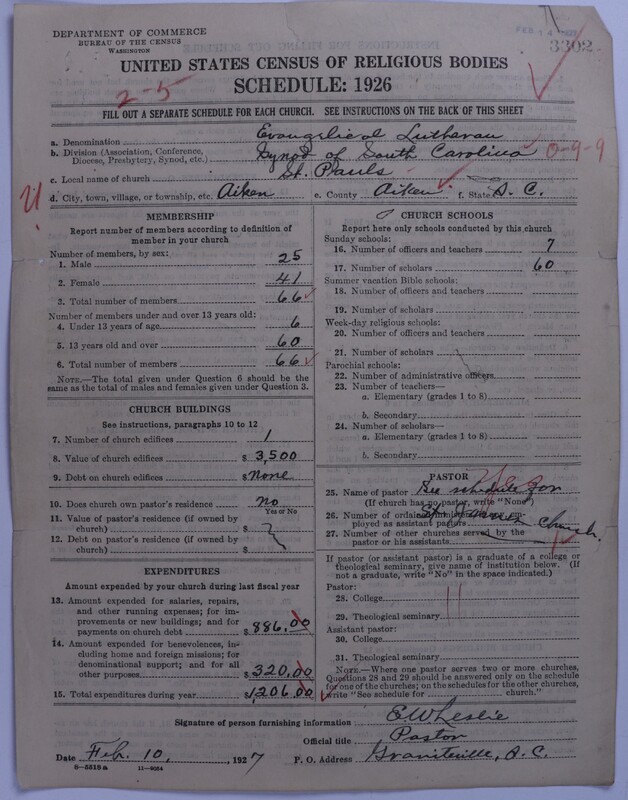 DEPARTMENT OF COMMERCE
BUREAU OF THE CENSUS
WASHINGTON
3302
UNITED STATES CENSUS OF RELIGIOUS BODIES
SCHEDULE: 1926
2-5
FILL OUT A SEPARATE SCHEDULE FOR EACH CHURCH. SEE INSTRUCTIONS ON THE BACK OF THIS SHEET
a. Denomination Evangelical Lutheran
b. Division (Association, Conference, Diocese, Presbytery, Synod, etc.) Synod of South Carolina 0-9-9
c. Local name of church St. Pauls
d. City, town, village, or township, etc. Aiken e. County Aiken f. State S. C.
MEMBERSHIP
Report number of members according to definition of
member in your church
Number of members, by sex:
1. Male 25
2. Female 41
3. Total number of members 66
Number of members under and over 13 years old:
4. Under 13 years of age 6
5. 13 years old and over 60
6. Total number of members 66
NOTE.—The total given under Question 6 should be the
same as the total of males and females given under Question 3.
CHURCH BUILDINGS
See instructions, paragraphs 10 to 12
7. Number of church edifices 1
8. Value of church edifices $ 3,500
9. Debt on church edifices $ None
10. Does church own pastor's residence No
Yes or No
11. Value of pastor's residence (if owned by
church) $
12. Debt on pastor's residence (if owned by
church) $
EXPENDITURES
Amount expended by your church during last fiscal year
13. Amount expended for salaries, repairs,
and other running expenses; for im-
provements or new buildings; and for
payments on church debt $ 886.00
14. Amount expended for benevolences, in-
cluding home and foreign missions; for
denominational support; and for all
other purposes $ 320.00
15. Total expenditures during year $ 1206.00
CHURCH SCHOOLS
Report here only schools conducted by this church
Sunday schools:
16. Number of officers and teachers 7
17. Number of scholars 60
Summer vacation Bible schools:
18. Number of officers and teachers
19. Number of scholars
Week-day religious schools:
20. Number of officers and teachers
21. Number of scholars
Parochial schools:
22. Number of administrative officers
23. Number of teachers—
a. Elementary (grades 1 to 8)
b. Secondary
24. Number of scholars—
a. Elementary (grades 1 to 8)
b. Secondary
PASTOR
25. Name of pastor See schedule for
(If church has no pastor, write "None")
26. Number of ordained ministers em-
ployed as assistant pastors Church.
27. Number of other churches served by the
pastor or his assistants
If pastor (or assistant pastor) is a graduate of a college or
theological seminary, give name of institution below. (If
not a graduate, write "No" in the space indicated.)
Pastor:
28. College
29. Theological seminary
Assistant pastor:
30. College
31. Theological seminary
NOTE.—Where one pastor serves two or more churches,
Questions 28 and 29 should be answered only on the schedule
for one of the churches; on the schedules for the other churches,
write "See schedule for church."
Signature of person furnishing information E W Leslie
Official title Pastor
Date Feb. 10, 1927 P. O. Address Graniteville, S. C.
8-5518 a 11-9054